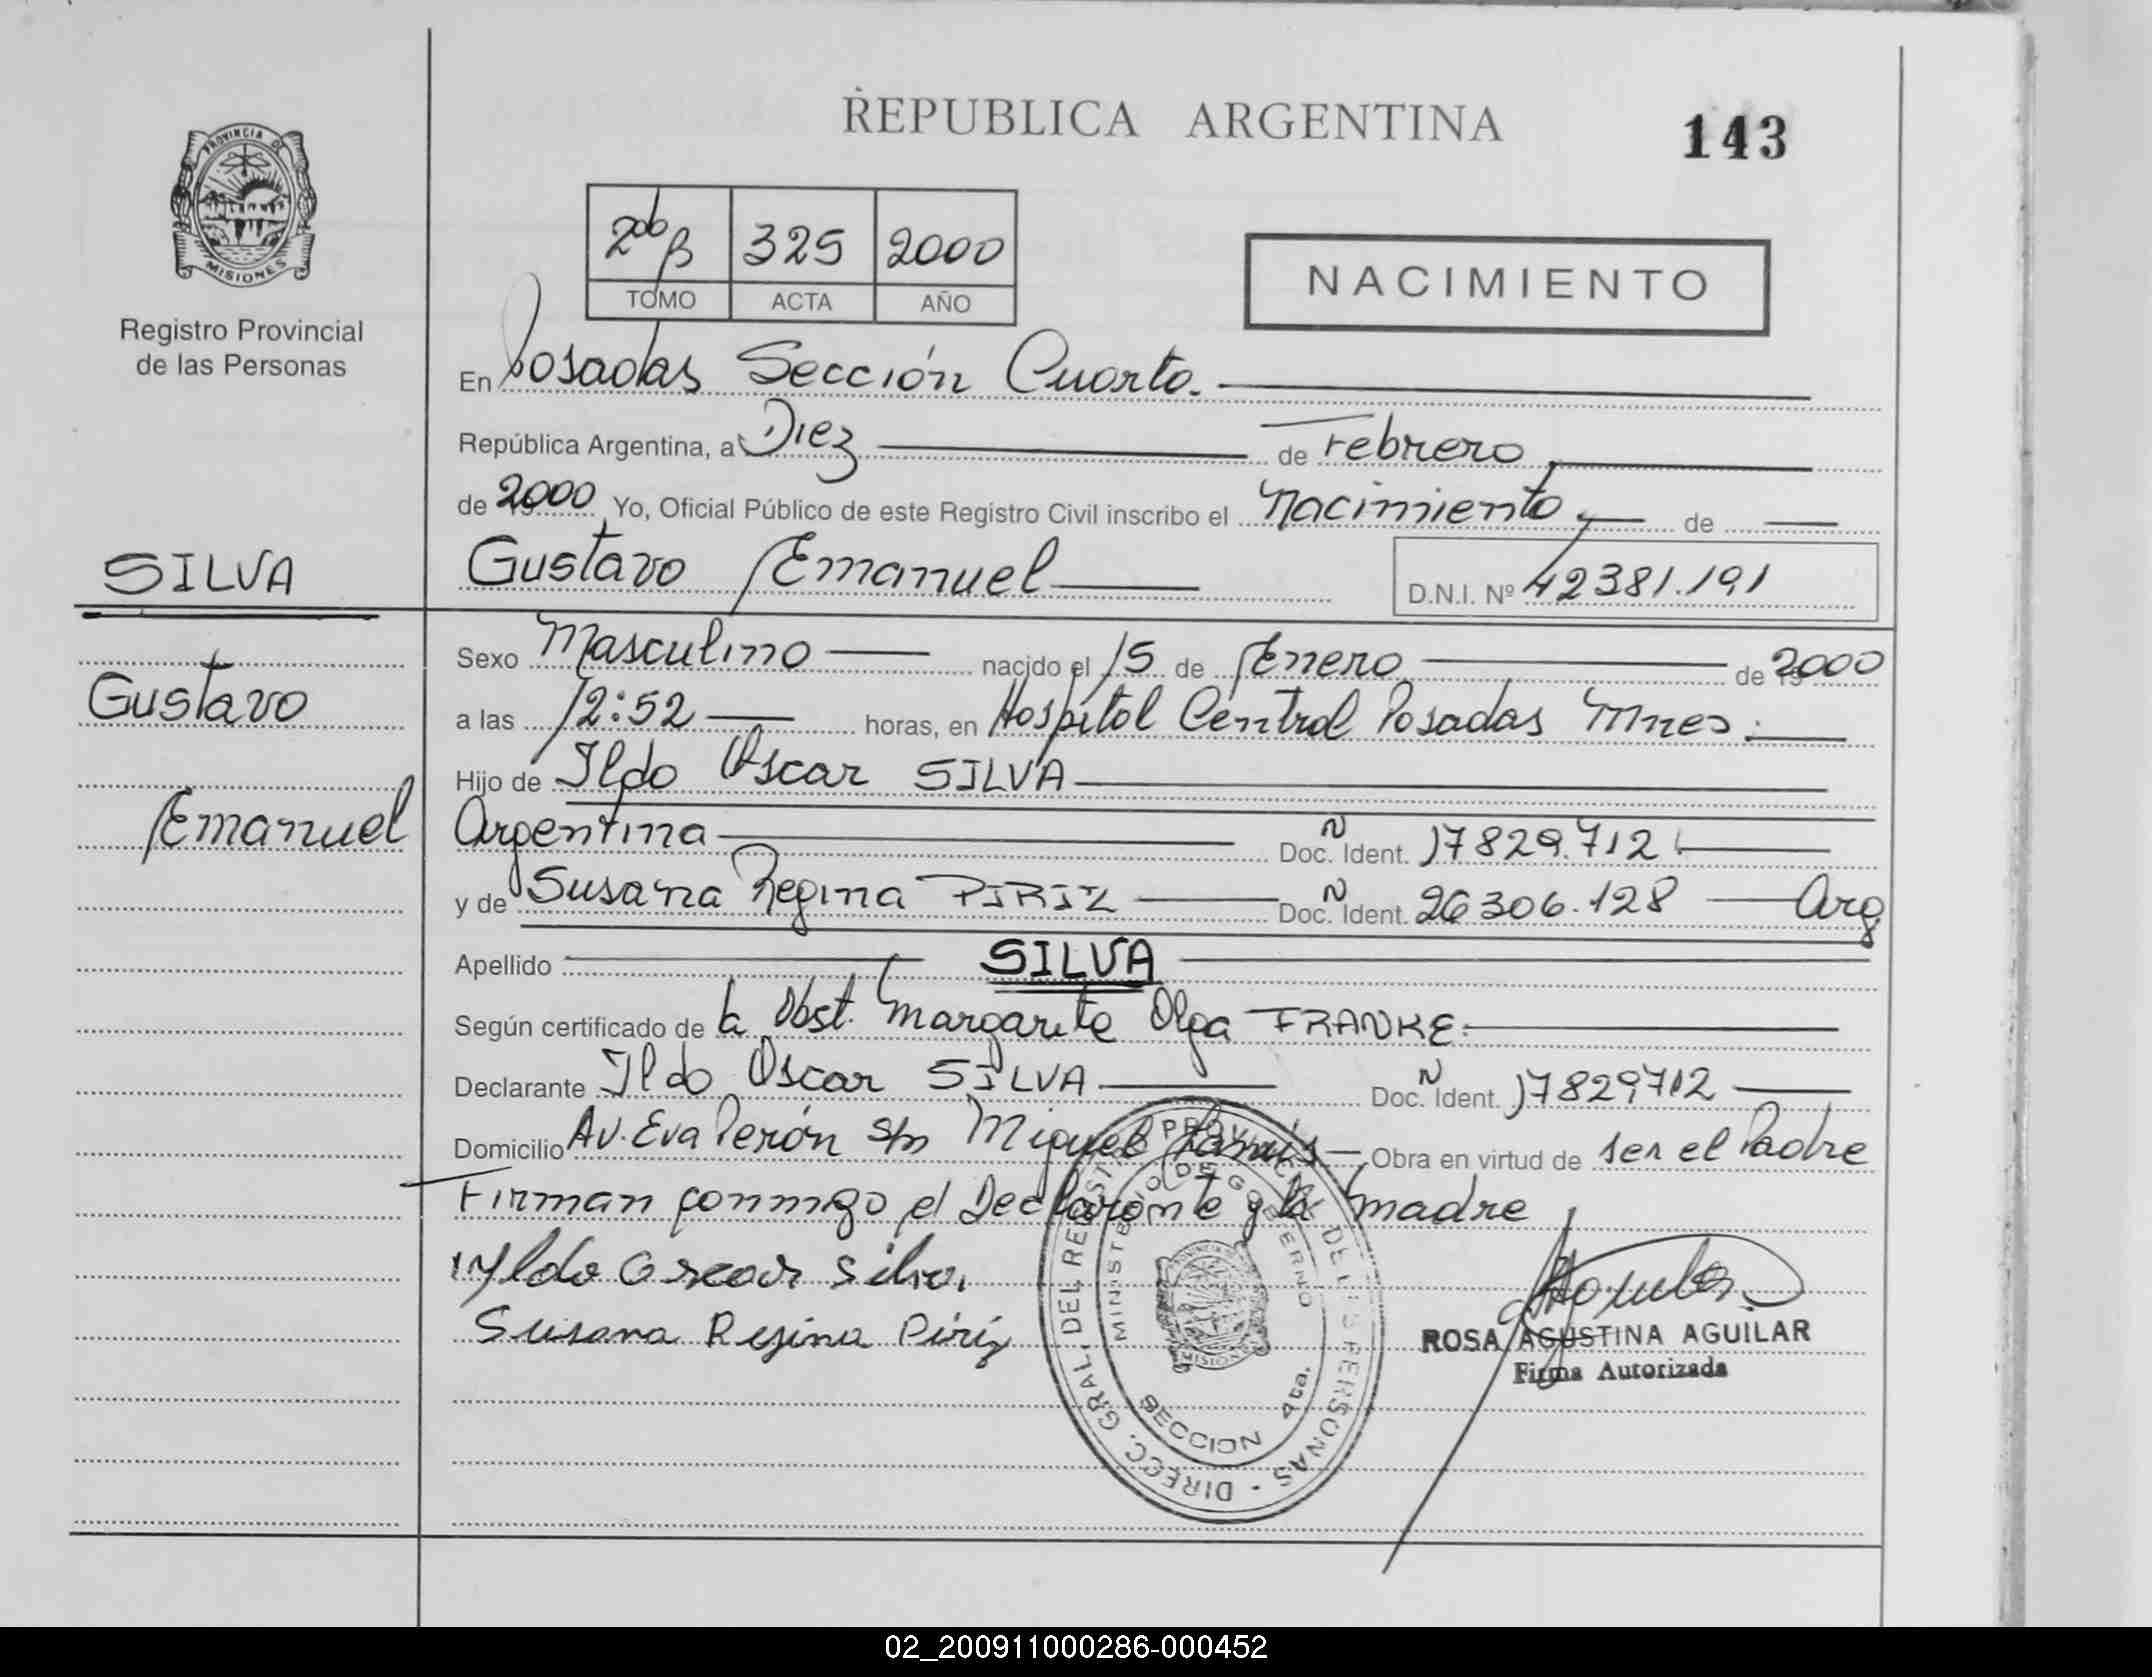 REPUBLICA ARGENTINA
143
PROVINCIA DE
MISIONES
Registro Provincial
de las Personas
2do B 325 2000
TOMO ACTA AÑO
NACIMIENTO
En Posadas Sección Cuarta.
República Argentina, a Diez de Febrero
de 2000 Yo, Oficial Público de este Registro Civil inscribo el Nacimiento de
Gustavo Emanuel D.N.I. Nº 42381.191
SILVA
Gustavo
Emanuel
Sexo Masculino nacido el 15 de Enero de 2000
a las 12:52 horas, en Hospital Central Posadas Mnes.
Hijo de Ildo Oscar SILVA
Argentina Doc. Ident. 17829.712
y de Susana Regina PIRIZ Doc. Ident. 26306.128 Arg
Apellido SILVA
Según certificado de la Obst. Margarita Olga FRANKE.
Declarante Ildo Oscar SILVA Doc. Ident. 17829712
Domicilio Av. Eva Perón s/n Miguel Lanús Obra en virtud de ser el Padre
Firman conmigo el Declarante y la madre
Yldo Oscar Silva
Susana Regina Piriz
DIRECC. GRAL. DEL REGISTRO PROVINCIAL DE LAS PERSONAS
MINISTERIO DE GOBIERNO
SECCION 4ta.
ROSA AGUSTINA AGUILAR
Firma Autorizada
02_200911000286-000452